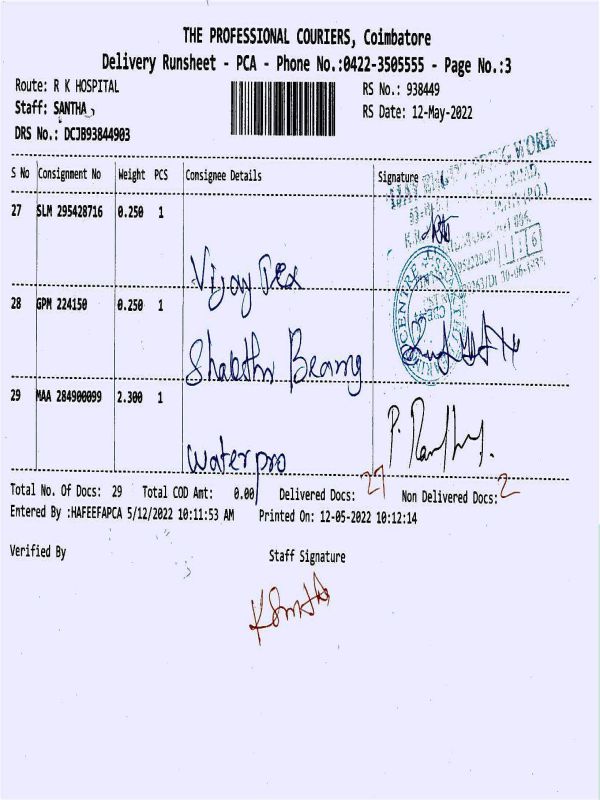 THE PROFESSIONAL COURIERS, Coimbatore
Delivery Runsheet - PCA - Phone No.:0422-3505555 - Page No.:3
Route: R K HOSPITAL RS No.: 938449
Staff: SANTHA RS Date: 12-May-2022
DRS No.: DCJB93844903
S No Consignment No Weight PCS Consignee Details Signature
27 SLM 295428716 0.250 1
Vijay Tex
28 GPM 224150 0.250 1
Shakthi Bearing
29 MAA 284900099 2.300 1
P.
Water pro
Total No. Of Docs: 29 Total COD Amt: 0.00 Delivered Docs: 27 Non Delivered Docs: 2
Entered By :HAFEEFAPCA 5/12/2022 10:11:53 AM Printed On: 12-05-2022 10:12:14
Verified By Staff Signature